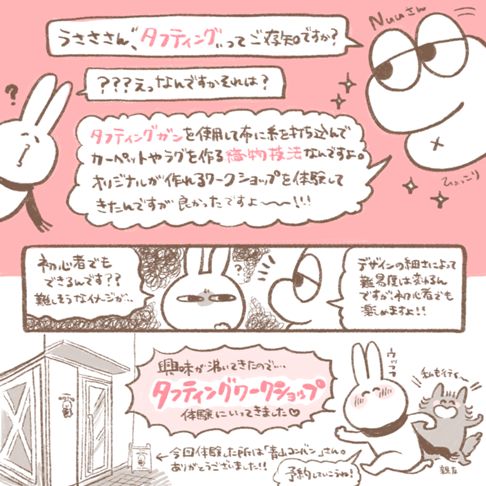 Nuuさん
うさささん、タフティングってご存知ですか?
???えっなんですかそれは?
?
タフティングガンを使用して布に糸を打ち込んで
カーペットやラグを作る織物技法なんですよ。
オリジナルが作れるワークショップを体験して
きたんですが良かったですよ〜〜!!!
ひょっこり
初心者でも
できるんです??
難しそうなイメージが…
?
デザインの細さによって
難易度は変わるん
ですが、初心者でも
楽しめますよ!!
興味が湧いてきたので…
タフティングワークショップ
体験にいってきました♡
ウッフフ
私も行く〜
親友
←今回体験した所は「青山コンバン」さん。
ありがとうございました!!
予約していこうね!